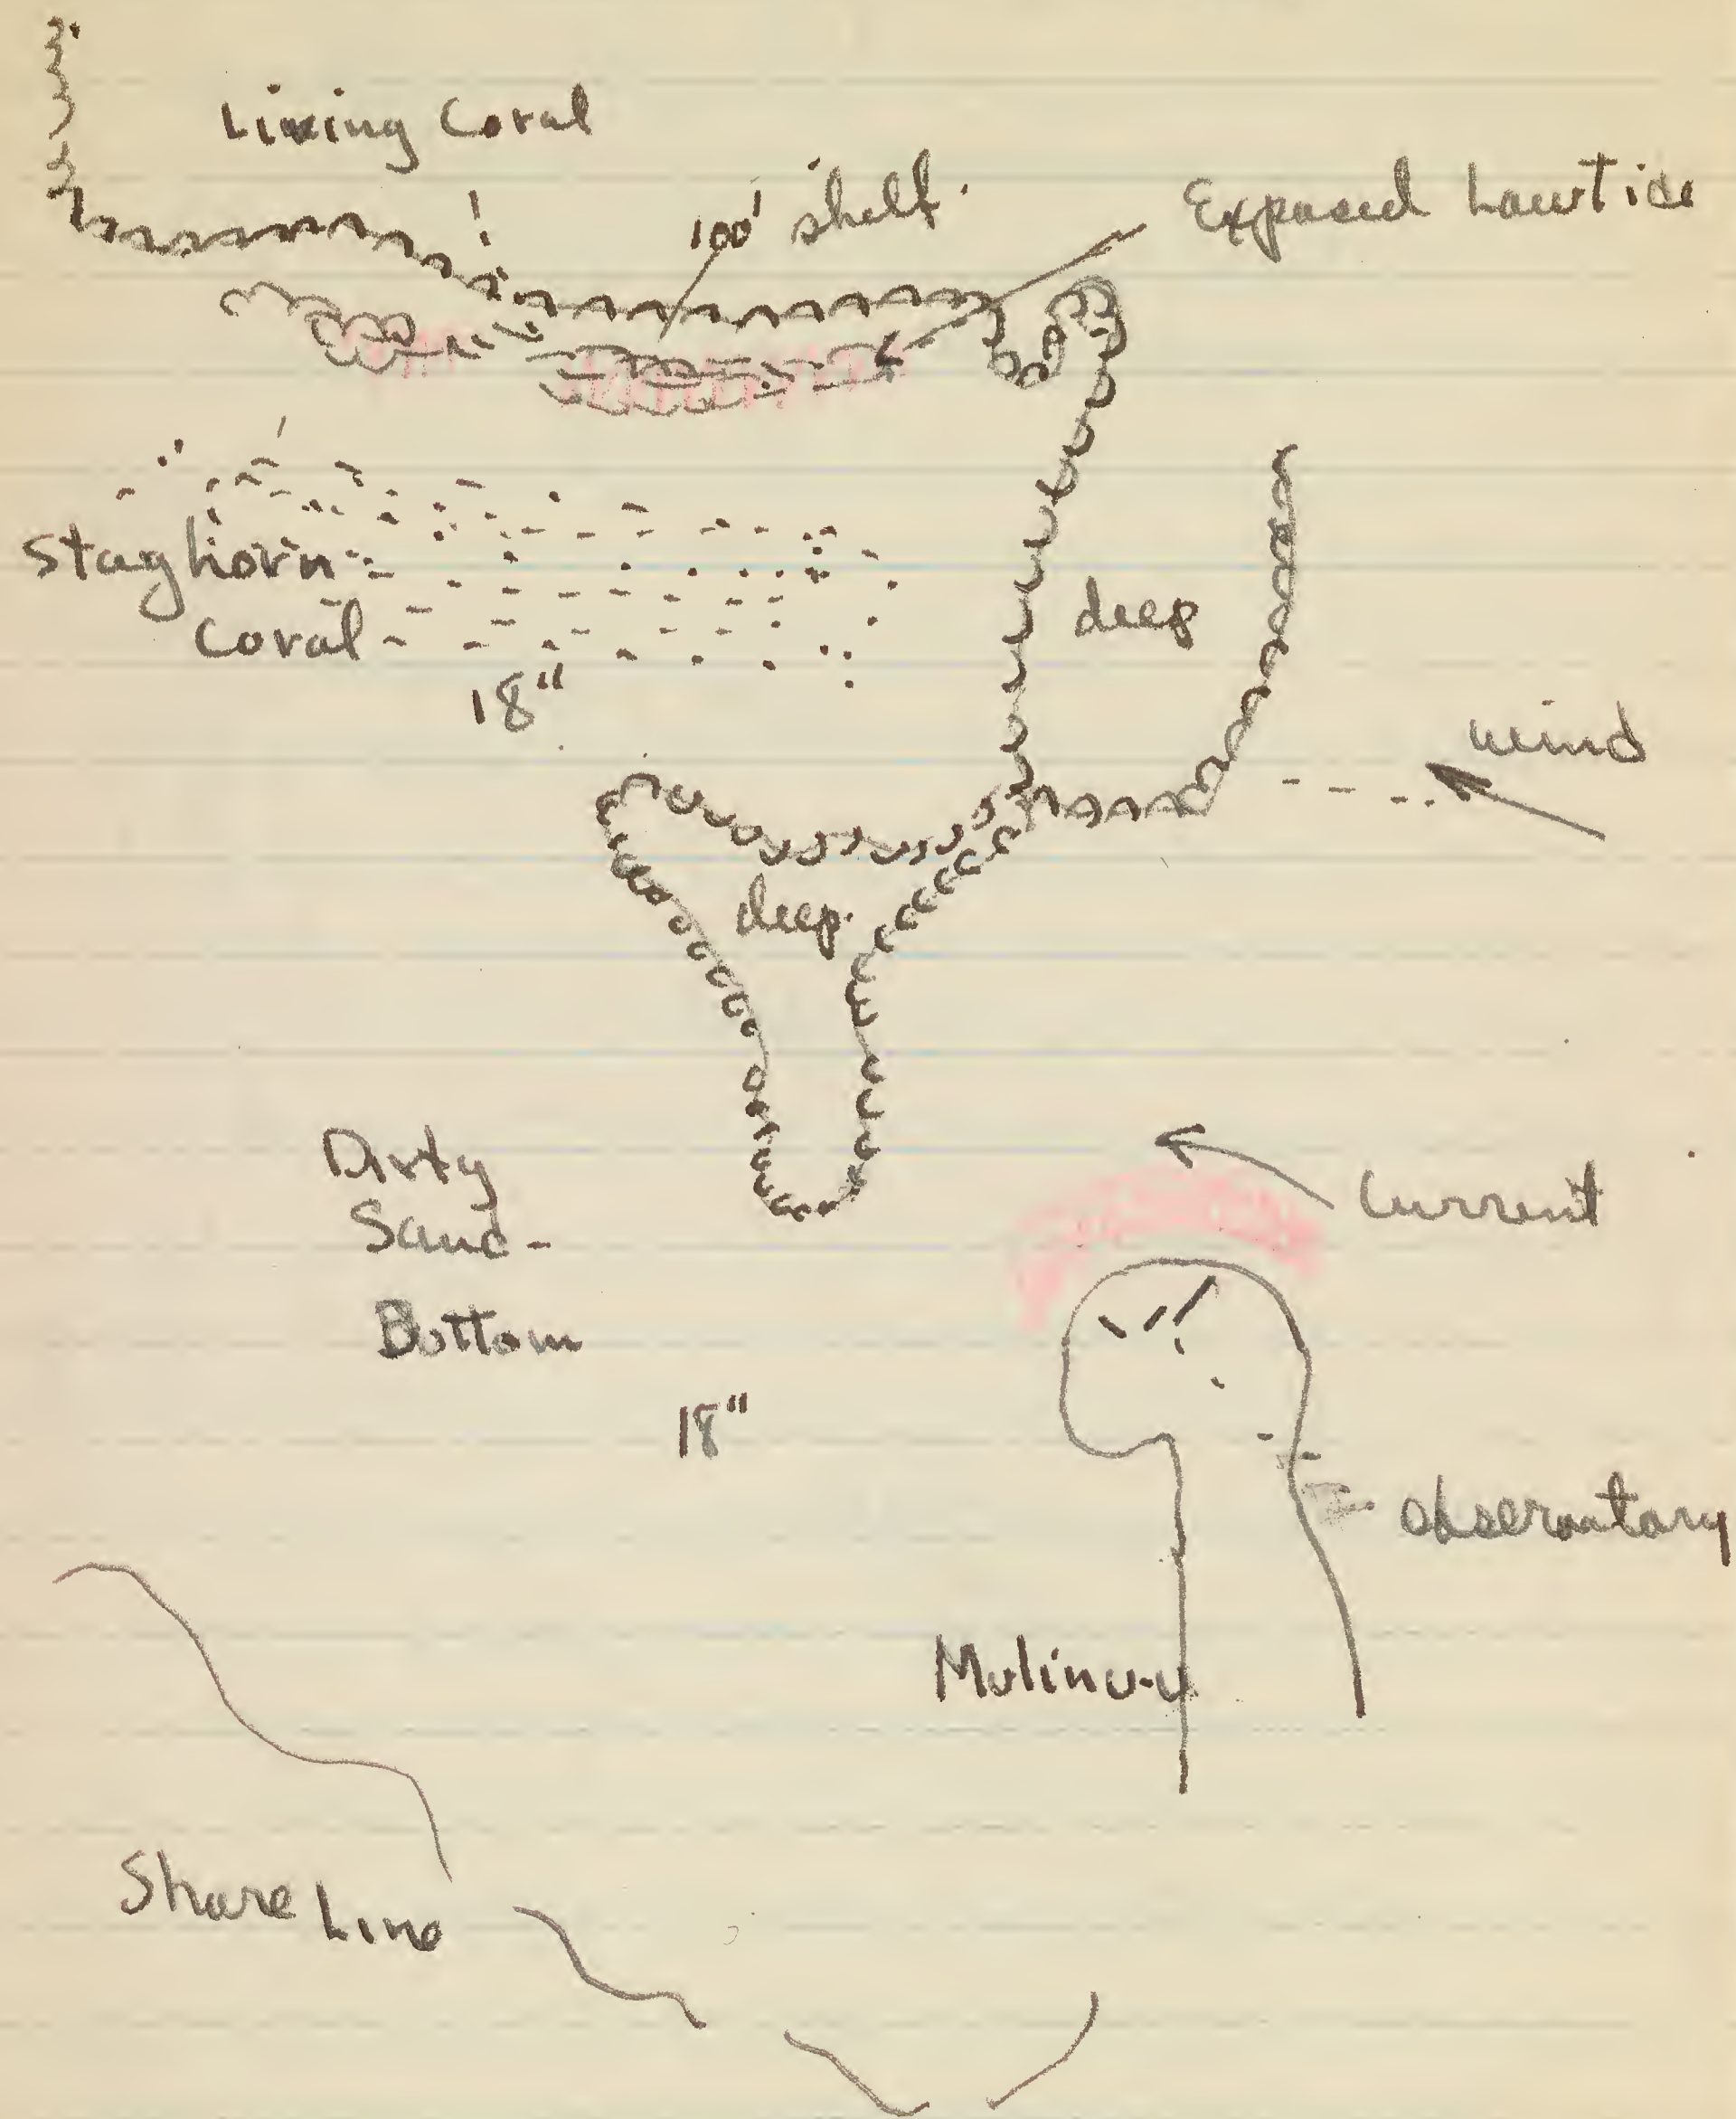 Living Coral
100' shelf.
Exposed Low Tide
Staghorn
Coral
18"
deep
wind
deep.
Dirty
Sand-
Bottom
Current
18"
Observatory
Mulinu-u
Shore Line